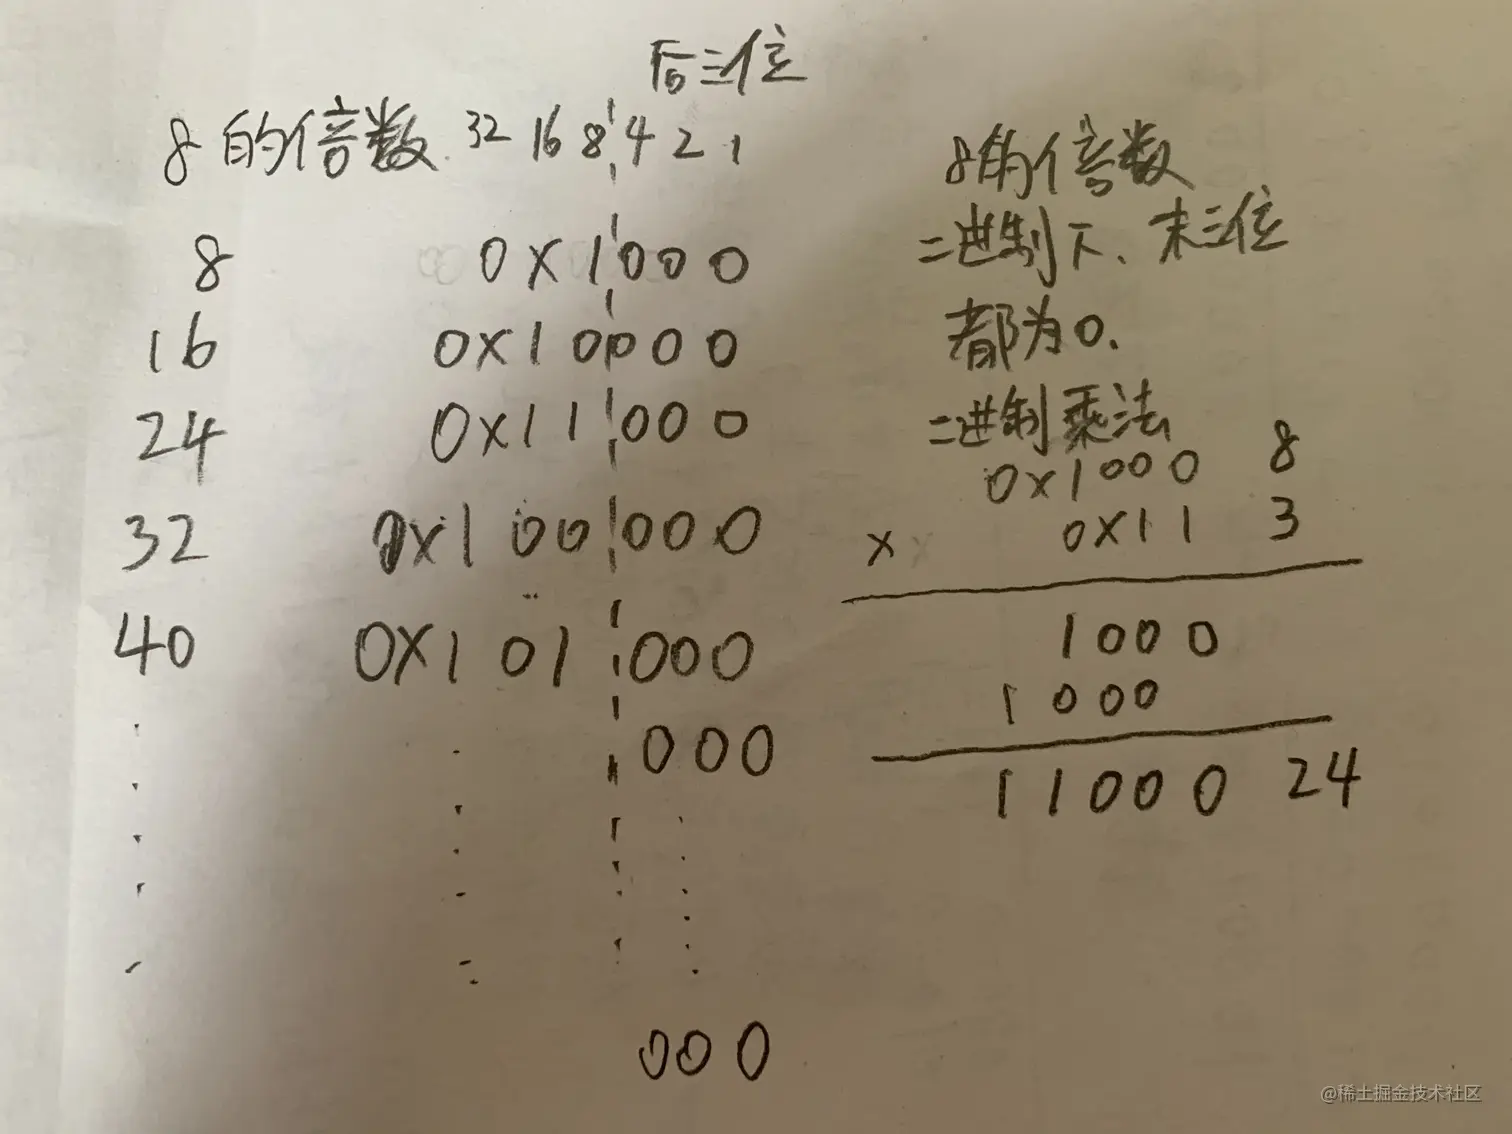 后三位
8的倍数 32 16 8 4 2 1
8 0x1000
16 0x10000
24 0x11000
32 0x100000
40 0x101000
000
000
8的倍数
二进制下、末三位
都为0.
二进制乘法
0x1000 8
x 0x11 3
1000
1000
11000 24
@稀土掘金技术社区